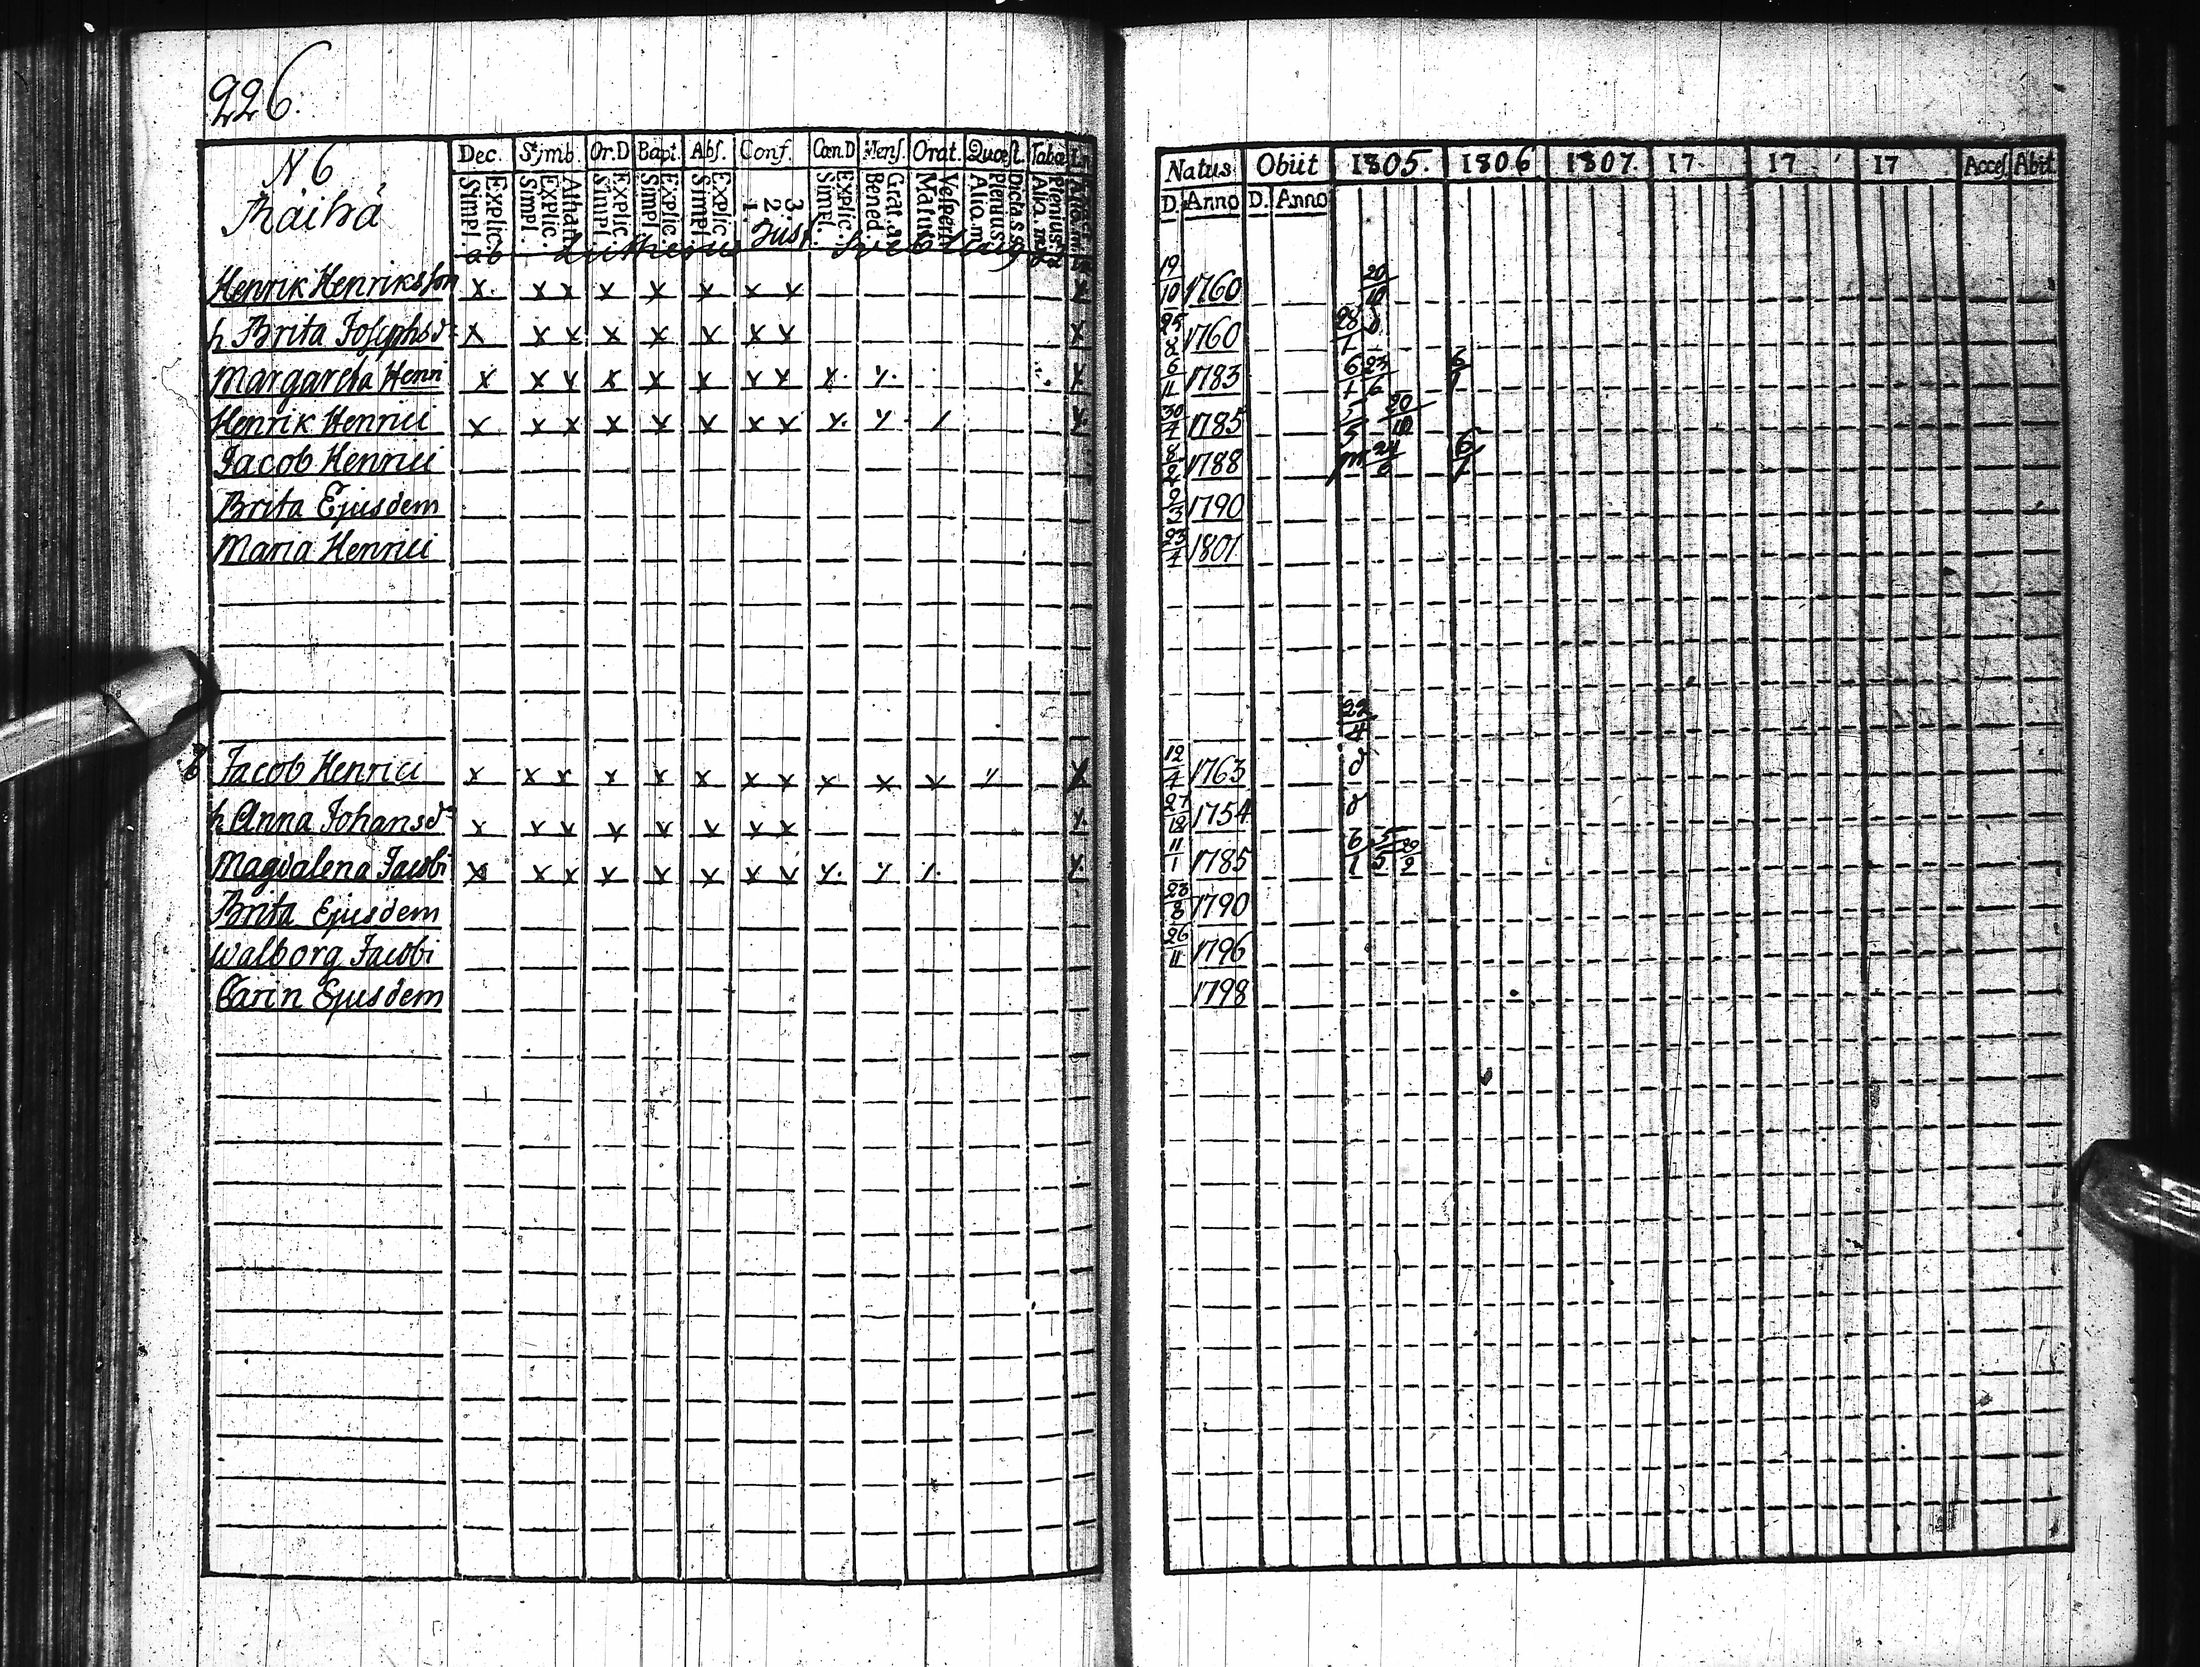 226.
N 6
Dec. Sÿmb. Or.D Bapt. Abſ. Conf. Cœn.D Menſ. Orat. Quæſt. Taba
Simpl. Explic. Simpl. Explic. Athan. Simpl. Explic. Simpl. Explic. Simpl. Explic. 1. 2. 3. Simpl. Explic. Bened. Grat. a. Matutin. Vespert. Aliq. m. Plenius. Dicta S. S. Aliq. m. Plenius.
Natus Obiit 1805. 1806 1807. 17 17 17 Acceſ. Abiit
D. Anno D. Anno
Henrik Henriksson x. x x x x x x x x 19/10 1760 20/10
h. Brita Josephsd: x x x x x x x x x 25/8 1760 28/1
Margareta Henri x x x x x x x x x. x. x 6/11 1783 6/1 23/6 6/1
Henrik Henrici x x x x x x x x x. x / x. 30/7 1785 5/5 20/10
Jacob Henrici 1788 24/6 6/1
Brita Ejusdem 1790
Maria Henrici 1801
22/4
Jacob Henrici x x x x x x x x x x x x x 12/4 1763
h. Anna Johansd: x x x x x x x x x. 27/12 1754
Magdalena Jacobi x x x x x x x x x. x x. x. 11/1 1785 6/1 5/5
Brita Ejusdem 23/8 1790
Walborg Jacobi 26/11 1796
Carin Ejusdem 1798